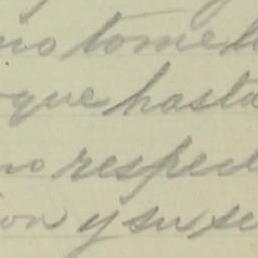 no tome l
que hasta
no respec
ion y su se